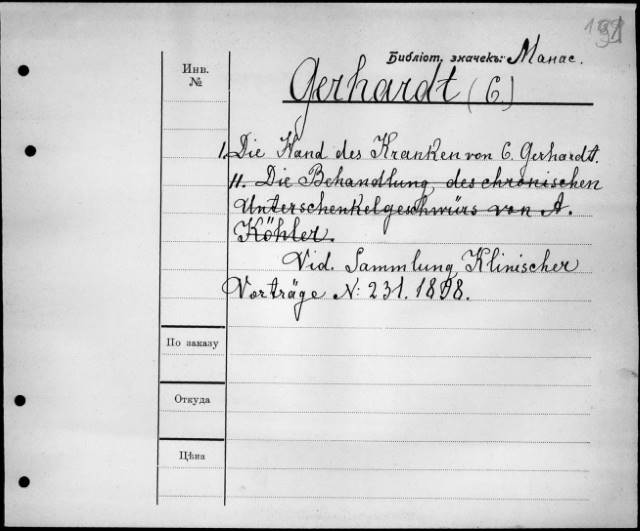 Библіот. значекъ: Манас.
Инв.
№
Gerhardt (C.)
1. Die Hand des Kranken von C. Gerhardt.
11. Die Behandlung des chronischen
Unterschenkelgeschwürs von A.
Köhler.
Vid. Sammlung Klinischer
Vorträge N: 231. 1898.
По заказу
Откуда
Цѣна